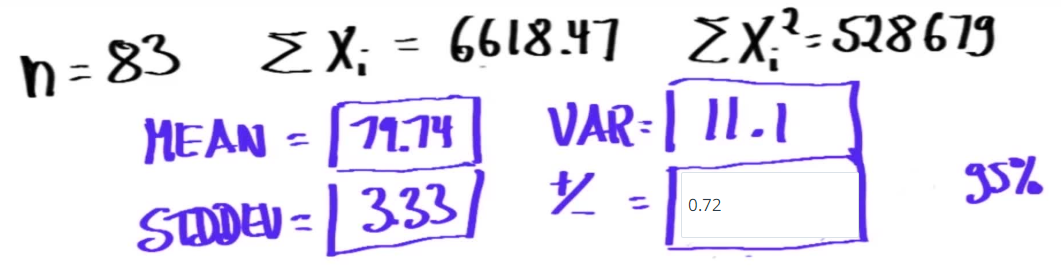 n = 83 Σ Xᵢ = 6618.47 ΣXᵢ²=528679
MEAN = 79.74 VAR= 11.1
STDDEV= 3.33 +/- = 0.72 95%